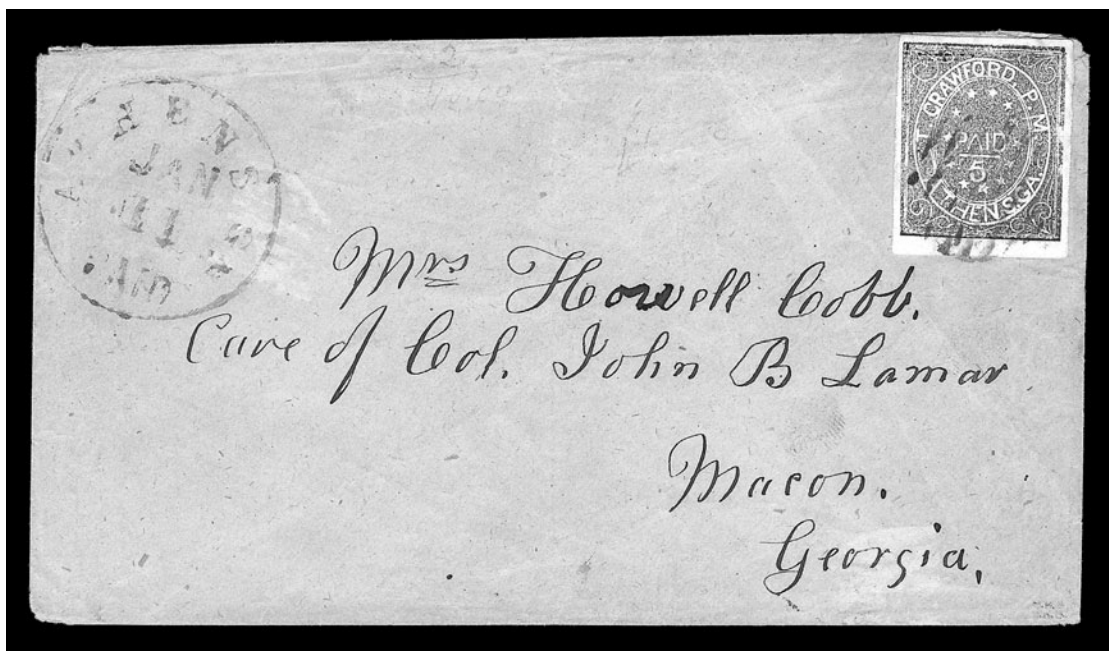 ATHENS
JAN
11
T. CRAWFORD, P.M.
PAID
5
ATHENS, GA.
Mrs Howell Cobb.
Care of Col. John B Lamar
Macon.
Georgia,